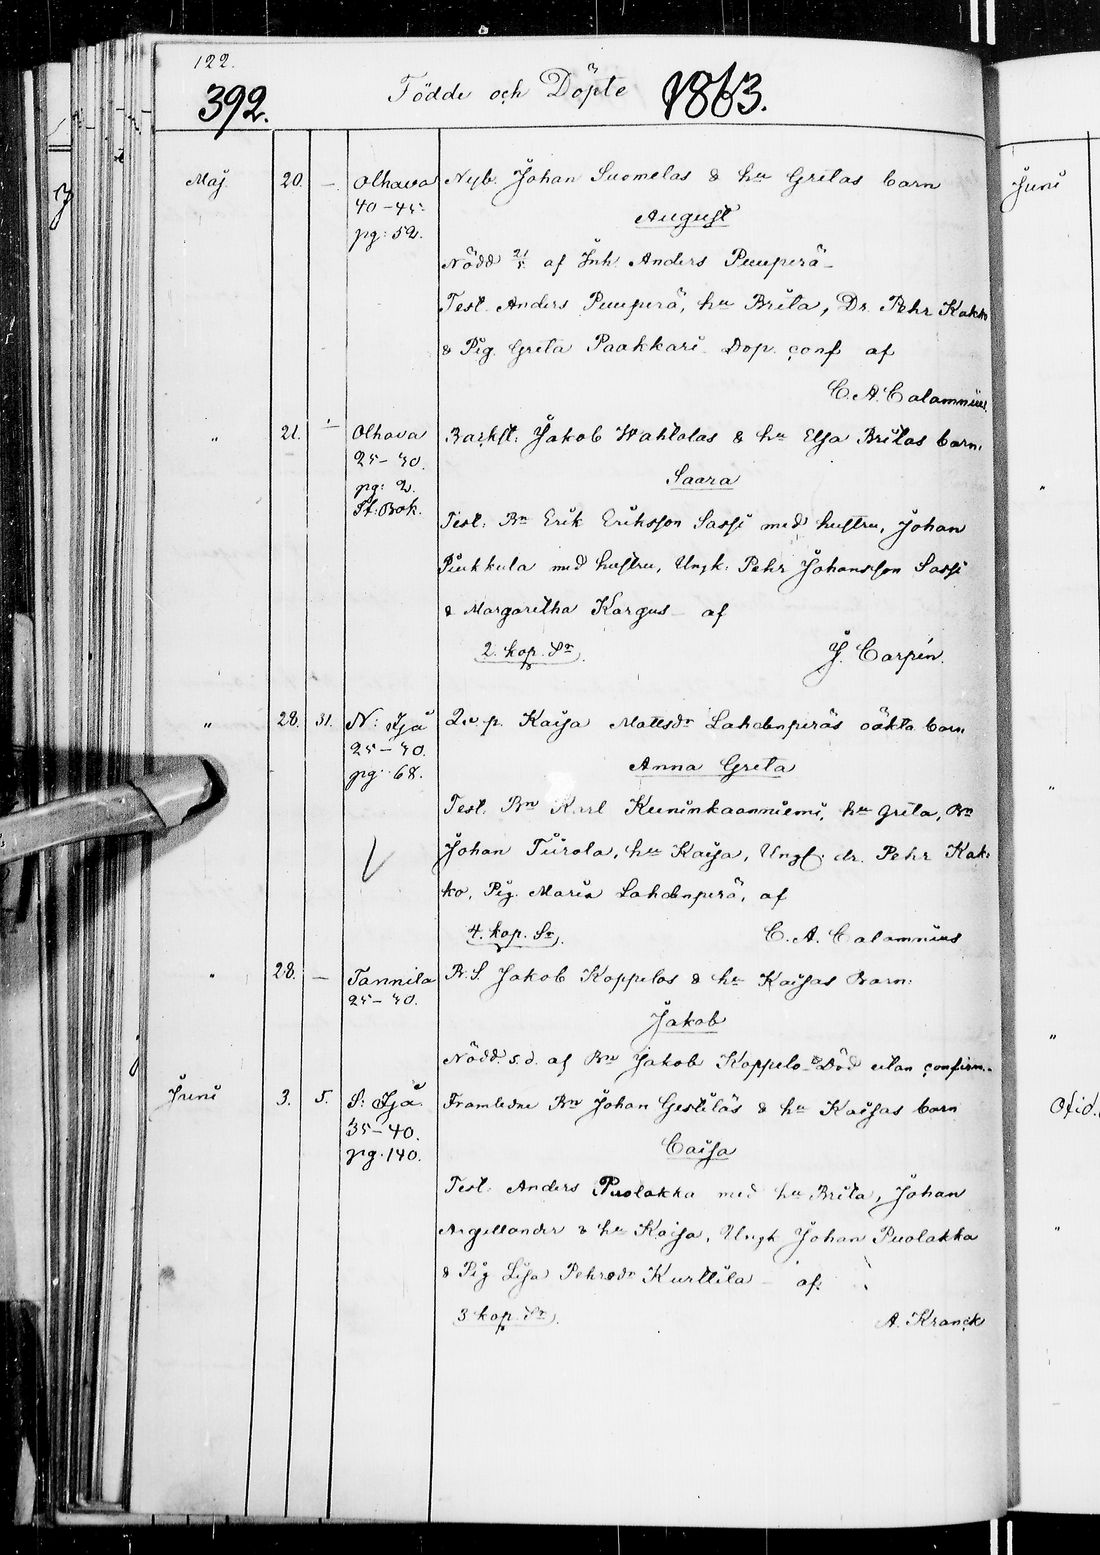 122.
392. Födde och Döpte 1863.
Maj. 20. – Olhava Nyb. Johan Suomelas & hu Gretas barn
40–45. August
pg: 52.
Nödd 21/5 af Inh. Anders Puuperä
Test. Anders Puuperä, hu Brita, Dr. Pehr Kakko
& Pig. Greta Paakkari. Dop. conf af
C. A. Calamnius.
" 21. – Olhava Backst: Jakob Wahtolas & hu Elsa Britas barn.
25–30. Saara
pg: 2.
St: Bok. Test: Bn Erik Eriksson Sassi med hustru, Johan
Piukkula med hustru, Ungk: Pehr Johansson Sassi
& Margaretha Kargus af
2. kop. Sr. J. Carpén.
" 28. 31. N: Ijå Qv. p. Kaisa Mattsdr Lahdenperäs oäkta barn
25–30. Anna Greta
pg. 68.
Test. Bn Karl Kuninkaanniemi, hu Greta, Bn
Johan Turola, hu Kaisa, Ungk. dr. Pehr Kak-
ko, Pig. Maria Lahdenperä, af
4. kop. Sr. C. A. Calamnius
" 28. – Tannila B.S. Jakob Koppelos & hu Kaisas Barn:
25–30. Jakob
Nödd. s. d. af Bn Jakob Koppelo Död utan confirm.
Juni 3. 5. S: Ijå Framledne Bn Johan Gestiläs & hu Kaisas barn
35–40. Caisa
pg. 140.
Test. Anders Puolakka med hu Brita, Johan
Argillander & hu Kaisa, Ungk Johan Puolakka
& Pig Lisa Pehrsdr Kurttila af.
3 kop. Sr. A. Kranck
Juni
"
"
"
Ofid.
"